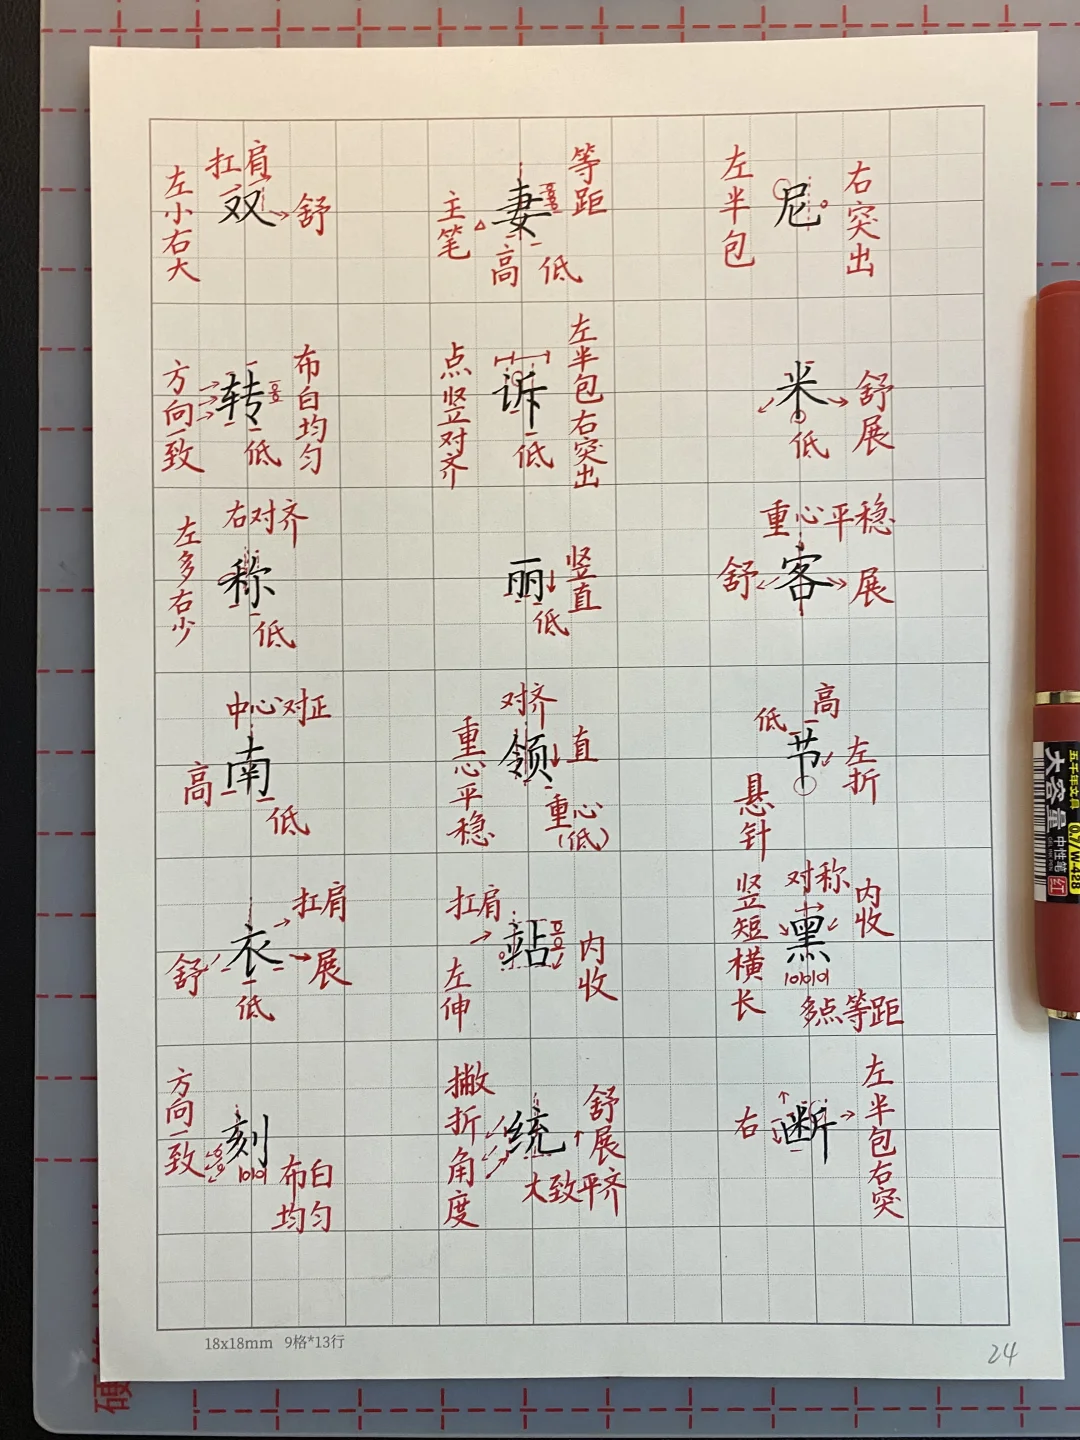 左小右大
扛肩
双
舒
主笔
妻
等距
高 低
左半包
尼
右突出
方向一致
转
布白均匀
低
点竖对齐
诉
左半包右突出
低
米
舒展
低
左多右少
右对齐
称
低
丽
竖直
低
重心平稳
舒
客
展
中心对正
高
南
低
对齐
重心平稳
领
直
重心
(低)
低
高
节
左折
悬针
扛肩
舒
衣
展
低
扛肩
站
左伸
内收
竖短横长
对称
黑
内收
多点等距
方向一致
刻
布白
均匀
撇折角度
统
舒展
大致平齐
右
断
左半包右突
18x18mm 9格*13行
24
五千年文具
0.7/W-428
大容量
中性笔
红